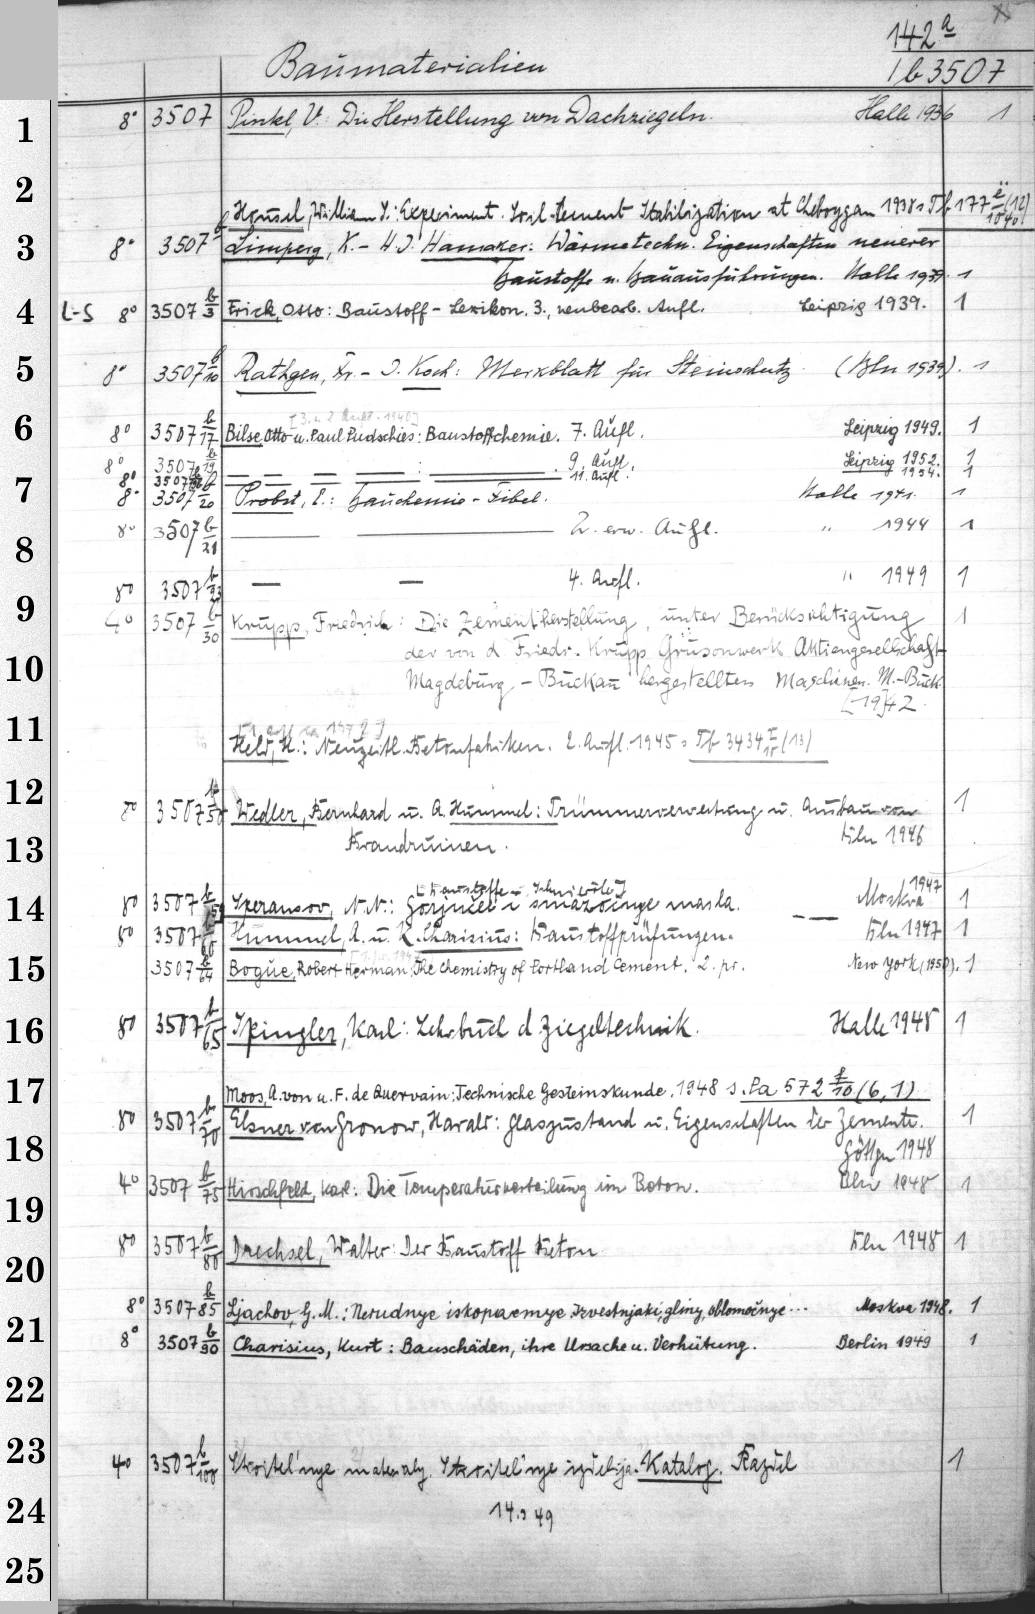 142a
Baumaterialien
Ib 3507
1 8° 3507 Pinkl, V.: Die Herstellung von Dachziegeln. Halle 1936 1
2
Housel, William S.: Experiment. Soil-Cement Stabilization at Cheboygan 1938 s. Tf 177 (12)
3 8° 3507 b Limperg, K. - H. J. Hamaker: Wärmetechn. Eigenschaften neuerer
Baustoffe u. Bauausführungen. Halle 1939. 1
4 L-S 8° 3507 b/3 Frick, Otto: Baustoff-Lexikon. 3., neubearb. Aufl. Leipzig 1939. 1
5 8° 3507 b/10 Rathgen, Fr. - J. Koch: Merkblatt für Steinschutz. (Bln 1939). 1
[3. u. 2 Aufl. 1940]
6 8° 3507 b/17 Bilse, Otto u. Paul Pudschies: Baustoffchemie. 7. Aufl. Leipzig 1949. 1
8° 3507 b/19 — — — — : — . 9. Aufl. Leipzig 1952. 1
8° 3507 11. Aufl. 1954. 1
7 8° 3507 b/20 Probst, E.: Bauchemie-Fibel. Halle 1941. 1
8° 3507 b/21 — — 2. erw. Aufl. " 1944 1
8
8° 3507 b/23 — — 4. Aufl. " 1949 1
9 4° 3507 b/30 Krupp, Friedrich: Die Zementherstellung, unter Berücksichtigung 1
10 der von d. Friedr. Krupp Grusonwerk Aktiengesellschaft
Magdeburg-Buckau hergestellten Maschinen. M.-Buck.
[19]42.
11
Held, H.: Neuzeitl. Betonfabriken. 2. Aufl. 1945 s. Tf 3434 (13)
12 8° 3507 b/50 Wedler, Bernhard u. A. Hummel: Trümmerverwertung u. Ausbau von 1
13 Brandruinen. Bln 1946
[Baustoffe u. Schmieröle]
14 8° 3507 b/59 Speransov, N. N.: Gorjučee i smazočnye masla. Moskva 1947 1
8° 3507 b/60 Hummel, A. u. K. Charisius: Baustoffprüfungen. Bln 1947 1
15 3507 b/64 Bogue, Robert Herman: The Chemistry of Portland Cement. 2. pr. New York (1950). 1
16 8° 3507 b/65 Spingler, Karl: Lehrbuch d. Ziegeltechnik. Halle 1948 1
17 Moos, A. von u. F. de Quervain: Technische Gesteinskunde. 1948 s. Pa 572 f/10 (6, 1)
8° 3507 b/70 Elsner von Gronow, Harald: Glaszustand u. Eigenschaften der Zemente. 1
18 Göttgn 1948
4° 3507 b/75 Hirschfeld, Karl: Die Temperaturverteilung im Beton. Bln 1948 1
19
8° 3507 b/80 Drechsel, Walter: Der Baustoff Beton Bln 1948 1
20
8° 3507 b/85 Ljachov, G. M.: Nerudnye iskopaemye izvestnjaki, gliny, oblomočnye ... Moskva 1948. 1
21 8° 3507 b/90 Charisius, Kurt: Bauschäden, ihre Ursache u. Verhütung. Berlin 1949 1
22
23 4° 3507 b/100 Stroitel'nye materialy. Stroitel'nye izdelija. Katalog. Razdel 1
24 14.2 49
25